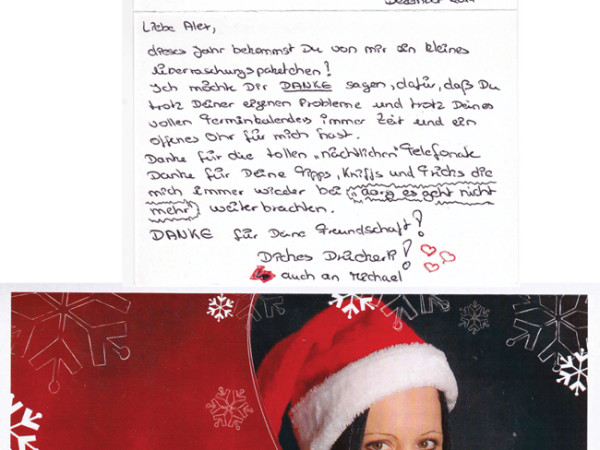 Liebe Alex,
dieses Jahr bekommst Du von mir ein kleines
Überraschungspaketchen!
Ich möchte Dir DANKE sagen, dafür, daß Du
trotz Deiner eigenen Probleme und trotz Deines
vollen Terminkalenders immer Zeit und ein
offenes Ohr für mich hast.
Danke für die tollen „nächtlichen" Telefonate
Danke für Deine Tipps, Kniffs und Tricks die
mich immer wieder bei („aarg es geht nicht
mehr") weiterbrachten.
DANKE für Deine Freundschaft!
Dickes Drückerli!
auch an Michael